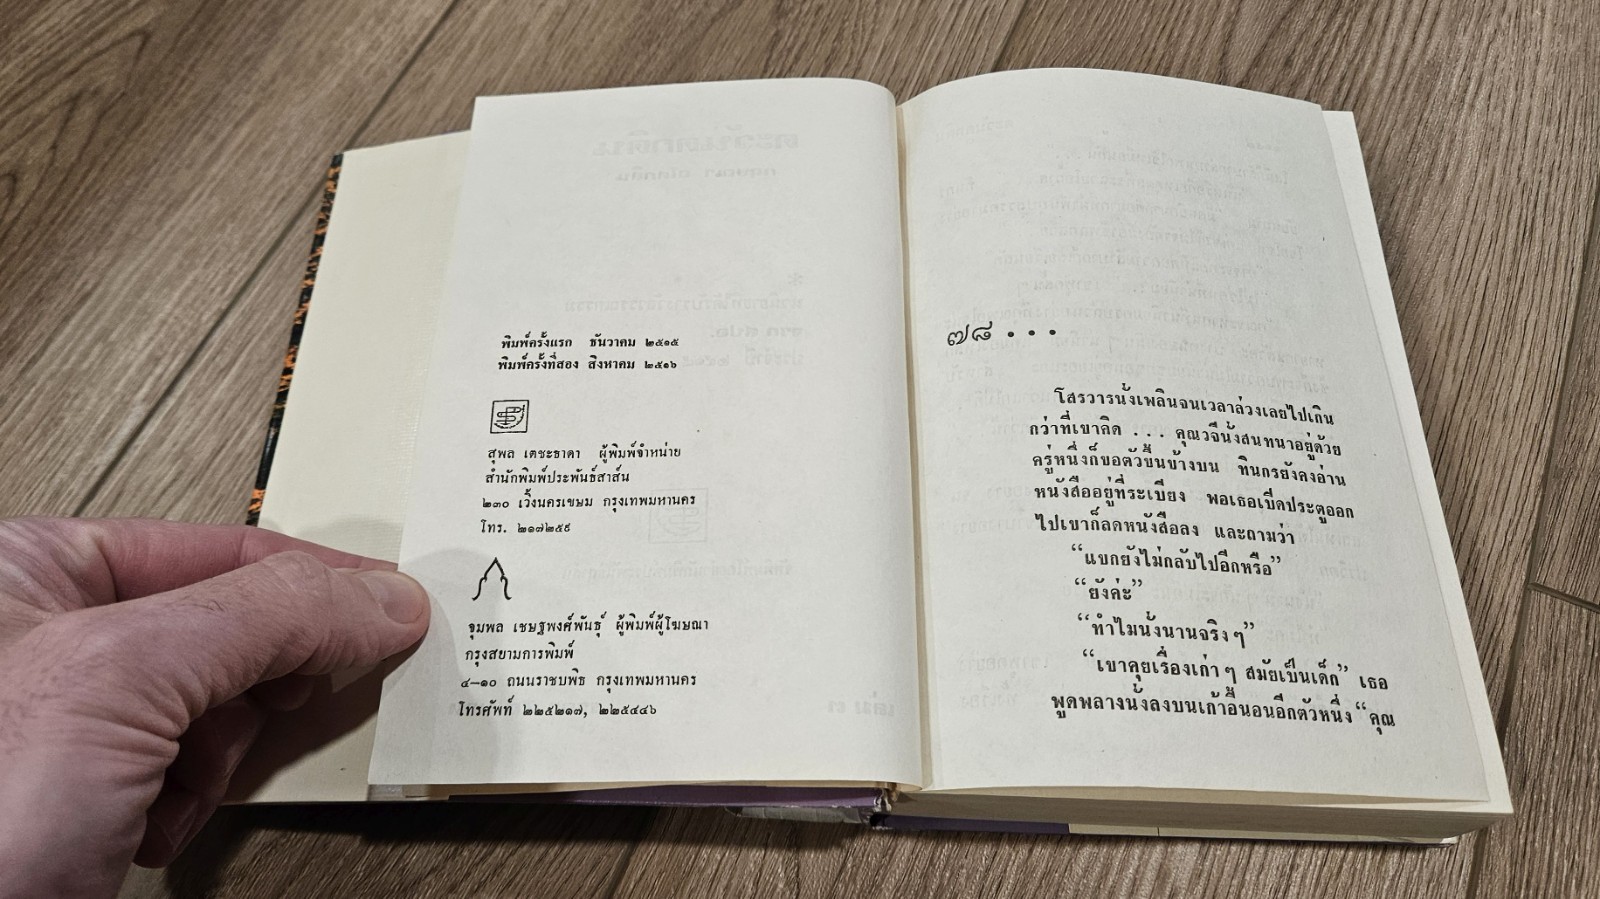 พิมพ์ครั้งแรก ธันวาคม ๒๕๑๕
พิมพ์ครั้งที่สอง สิงหาคม ๒๕๑๖
สุพล เตชะธาดา ผู้พิมพ์จำหน่าย
สำนักพิมพ์ประพันธ์สาส์น
๒๓๐ เวิ้งนครเขษม กรุงเทพมหานคร
โทร. ๒๑๗๒๕๙
จุมพล เชษฐพงศ์พันธุ์ ผู้พิมพ์ผู้โฆษณา
กรุงสยามการพิมพ์
๔—๑๐ ถนนราชบพิธ กรุงเทพมหานคร
โทรศัพท์ ๒๒๕๒๑๗, ๒๒๕๔๔๖
๗๘ . . .
โสรวารนั่งเพลินจนเวลาล่วงเลยไปเกิน
กว่าที่เขาคิด . . . คุณวจีนั่งสนทนาอยู่ด้วย
ครู่หนึ่งก็ขอตัวขึ้นข้างบน ทินกรยังคงอ่าน
หนังสืออยู่ที่ระเบียง พอเธอเปิดประตูออก
ไปเขาก็ลดหนังสือลง และถามว่า
“แขกยังไม่กลับไปอีกหรือ”
“ยังค่ะ”
“ทำไมนั่งนานจริง ๆ”
“เขาคุยเรื่องเก่า ๆ สมัยเป็นเด็ก” เธอ
พูดพลางนั่งลงบนเก้าอี้นอนอีกตัวหนึ่ง “คุณ